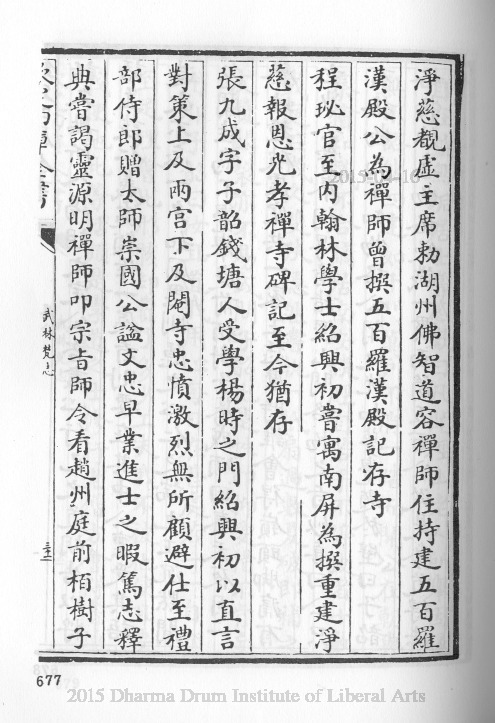 淨慈覩虛主席勅湖州佛智道容禪師住持建五百羅
漢殿公為禪師曾撰五百羅漢殿記存寺
程珌官至內翰林學士紹興初嘗寓南屏為撰重建淨
慈報恩光孝禪寺碑記至今猶存
張九成字子韶錢塘人受學楊時之門紹興初以直言
對策上及兩宮下及閹寺忠憤激烈無所顧避仕至禮
部侍郎贈太師崇國公諡文忠早業進士之暇篤志釋
典嘗謁靈源明禪師叩宗旨師令看趙州庭前栢樹子
武林梵志
677
2015 Dharma Drum Institute of Liberal Arts